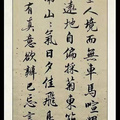 人境而無車馬喧
遠地自偏採菊東
山〻氣日夕佳飛
有真意欲辯已忘言